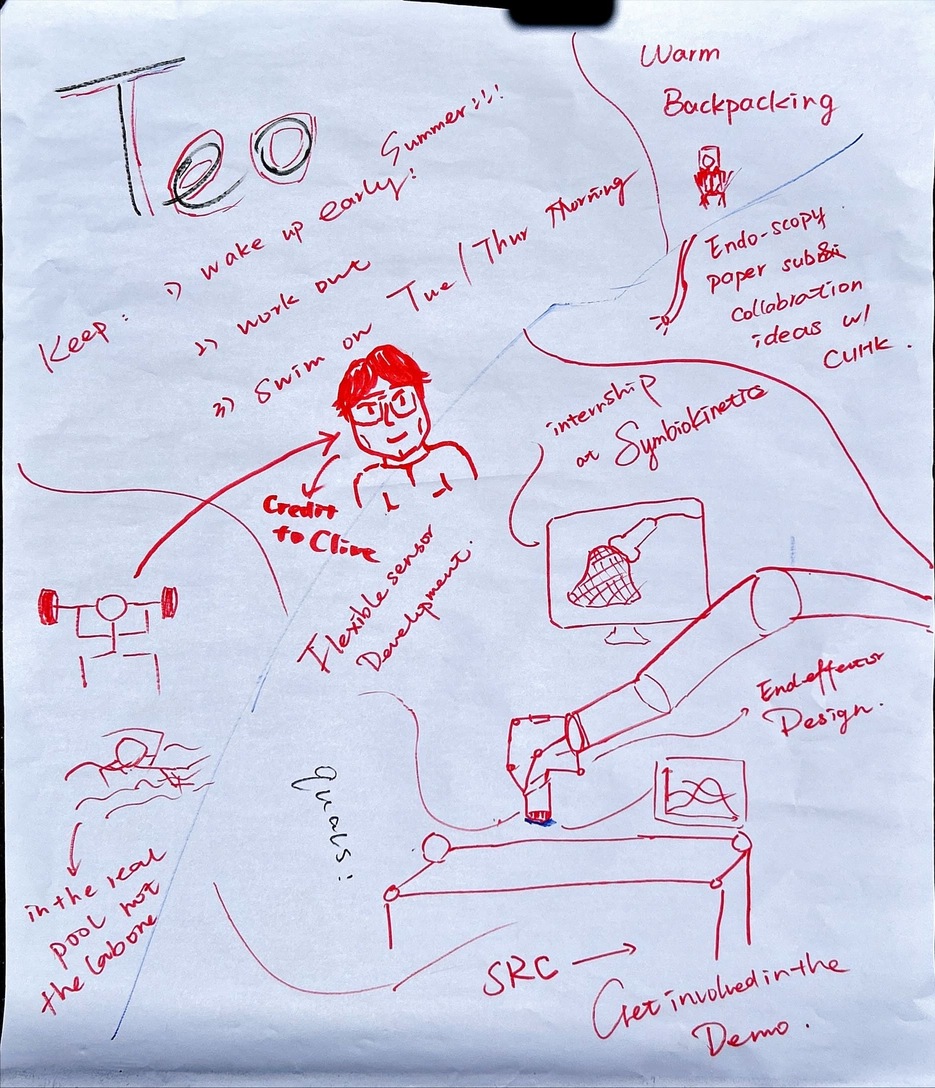 Teo
Summer!!!
Keep:
1) wake up early!
2) work out
3) Swim on Tue/Thur Morning
Warm
Backpacking
Endo-scopy
paper sub
collabration
ideas w/
CUHK.
internship
at Symbiokinetics
Credit
to Clive
Flexible sensor
Development.
End-effector
Design.
quals!
in the real
pool not
the labone
SRC →
Get involved in the
Demo.